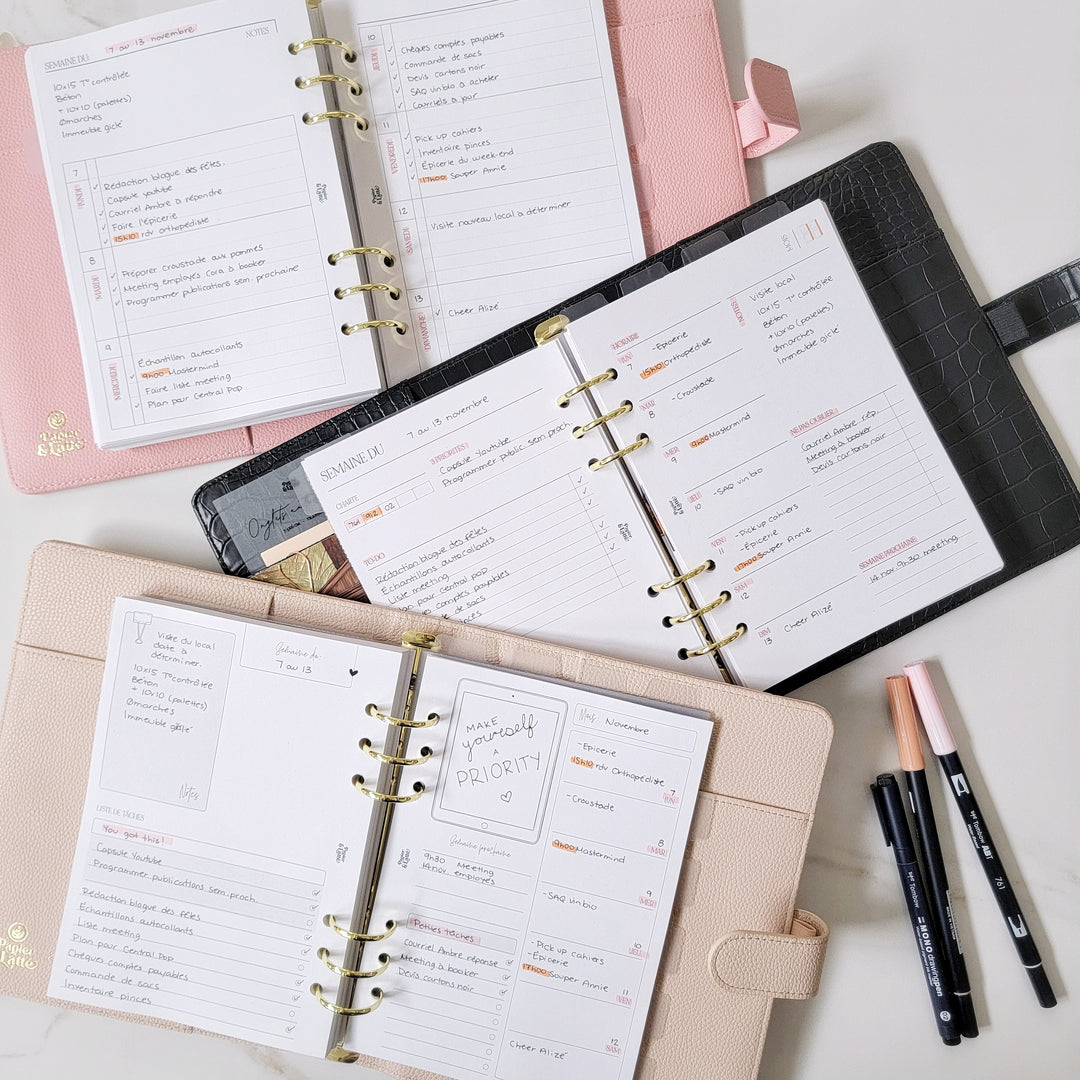 SEMAINE DU: 7 au 13 novembre
NOTES
10x15 T° contrôlée
Béton
+ 10x10 (palettes)
Ømarches
Immeuble giclé
7
LUNDI
✓ Rédaction blogue des fêtes.
Capsule youtube
✓ Courriel Ambre à répondre
✓ Faire l'épicerie
✓ 15h10 rdv orthopédiste
8
MARDI
✓ Préparer croustade aux pommes
✓ Meeting employés Cora à booker
✓ Programmer publications sem. prochaine
9
MERCREDI
Échantillon autocollants
✓ 9h00 Mastermind
Faire liste meeting
✓ Plan pour Central Pop
Papier & Latté
10
JEUDI
✓ Chèques comptes payables
✓ Commande de sacs
✓ Devis cartons noir
✓ SAQ vin bio à acheter
✓ Courriels à jour
11
VENDREDI
✓ Pick up cahiers
✓ Inventaire pinces
✓ Épicerie du week-end
17h00 Souper Annie
12
SAMEDI
Visite nouveau local à déterminer
13
DIMANCHE
✓ Cheer Alizé
Papier & Latté
SEMAINE DU 7 au 13 novembre
3 PRIORITÉS
Capsule Youtube
Programmer public. sem. proch.
CHARTE
761 912 02
TO DO
Rédaction blogue des fêtes
Échantillons autocollants
Liste meeting
Plan pour central pop
comptes payables
de sacs
HORAIRE
LUN 7
-Épicerie
15h10 Orthopédiste
MAR 8
-Croustade
MER 9
9h00 Mastermind
JEU 10
-SAQ vin bio
VEN 11
-Pick up cahiers
-Épicerie
17h00 Souper Annie
SAM 12
DIM 13
Cheer Alizé
NOTES
Visite local
10x15 T° contrôlée
Béton
+10x10 (palettes)
Ømarches
Immeuble giclé
NE PAS OUBLIER
Courriel Ambre rép.
Meeting à booker
Devis cartons noir
SEMAINE PROCHAINE
14 nov. 9h30 meeting
Visite du local
date à
déterminer.
10x15 T° contrôlée
Béton
+ 10x10 (palettes)
Ømarches
Immeuble giclé
Notes
Semaine du:
7 au 13
LISTE DE TÂCHES
You got this!
Capsule Youtube
Programmer publications sem. proch.
Rédaction blogue des fêtes
Échantillons autocollants
Liste meeting
Plan pour Central Pop
Chèques comptes payables
Commande de sacs
Inventaire pinces
MAKE
yourself
A
PRIORITY
Semaine prochaine
9h30 Meeting
14 nov. employés
Petites tâches
Courriel Ambre réponse
Meeting à booker
Devis cartons noir
Mois: Novembre
-Épicerie
15h10 rdv Orthopédiste
7
LUN
-Croustade
8
MAR
9h00 Mastermind
9
MER
-SAQ vin bio
10
JEU
-Pick up cahiers
-Épicerie
17h00 Souper Annie
11
VEN
12
SAM
Cheer Alizé
Papier & Latté
Tombow MONO drawing pen
Tombow ABT
761